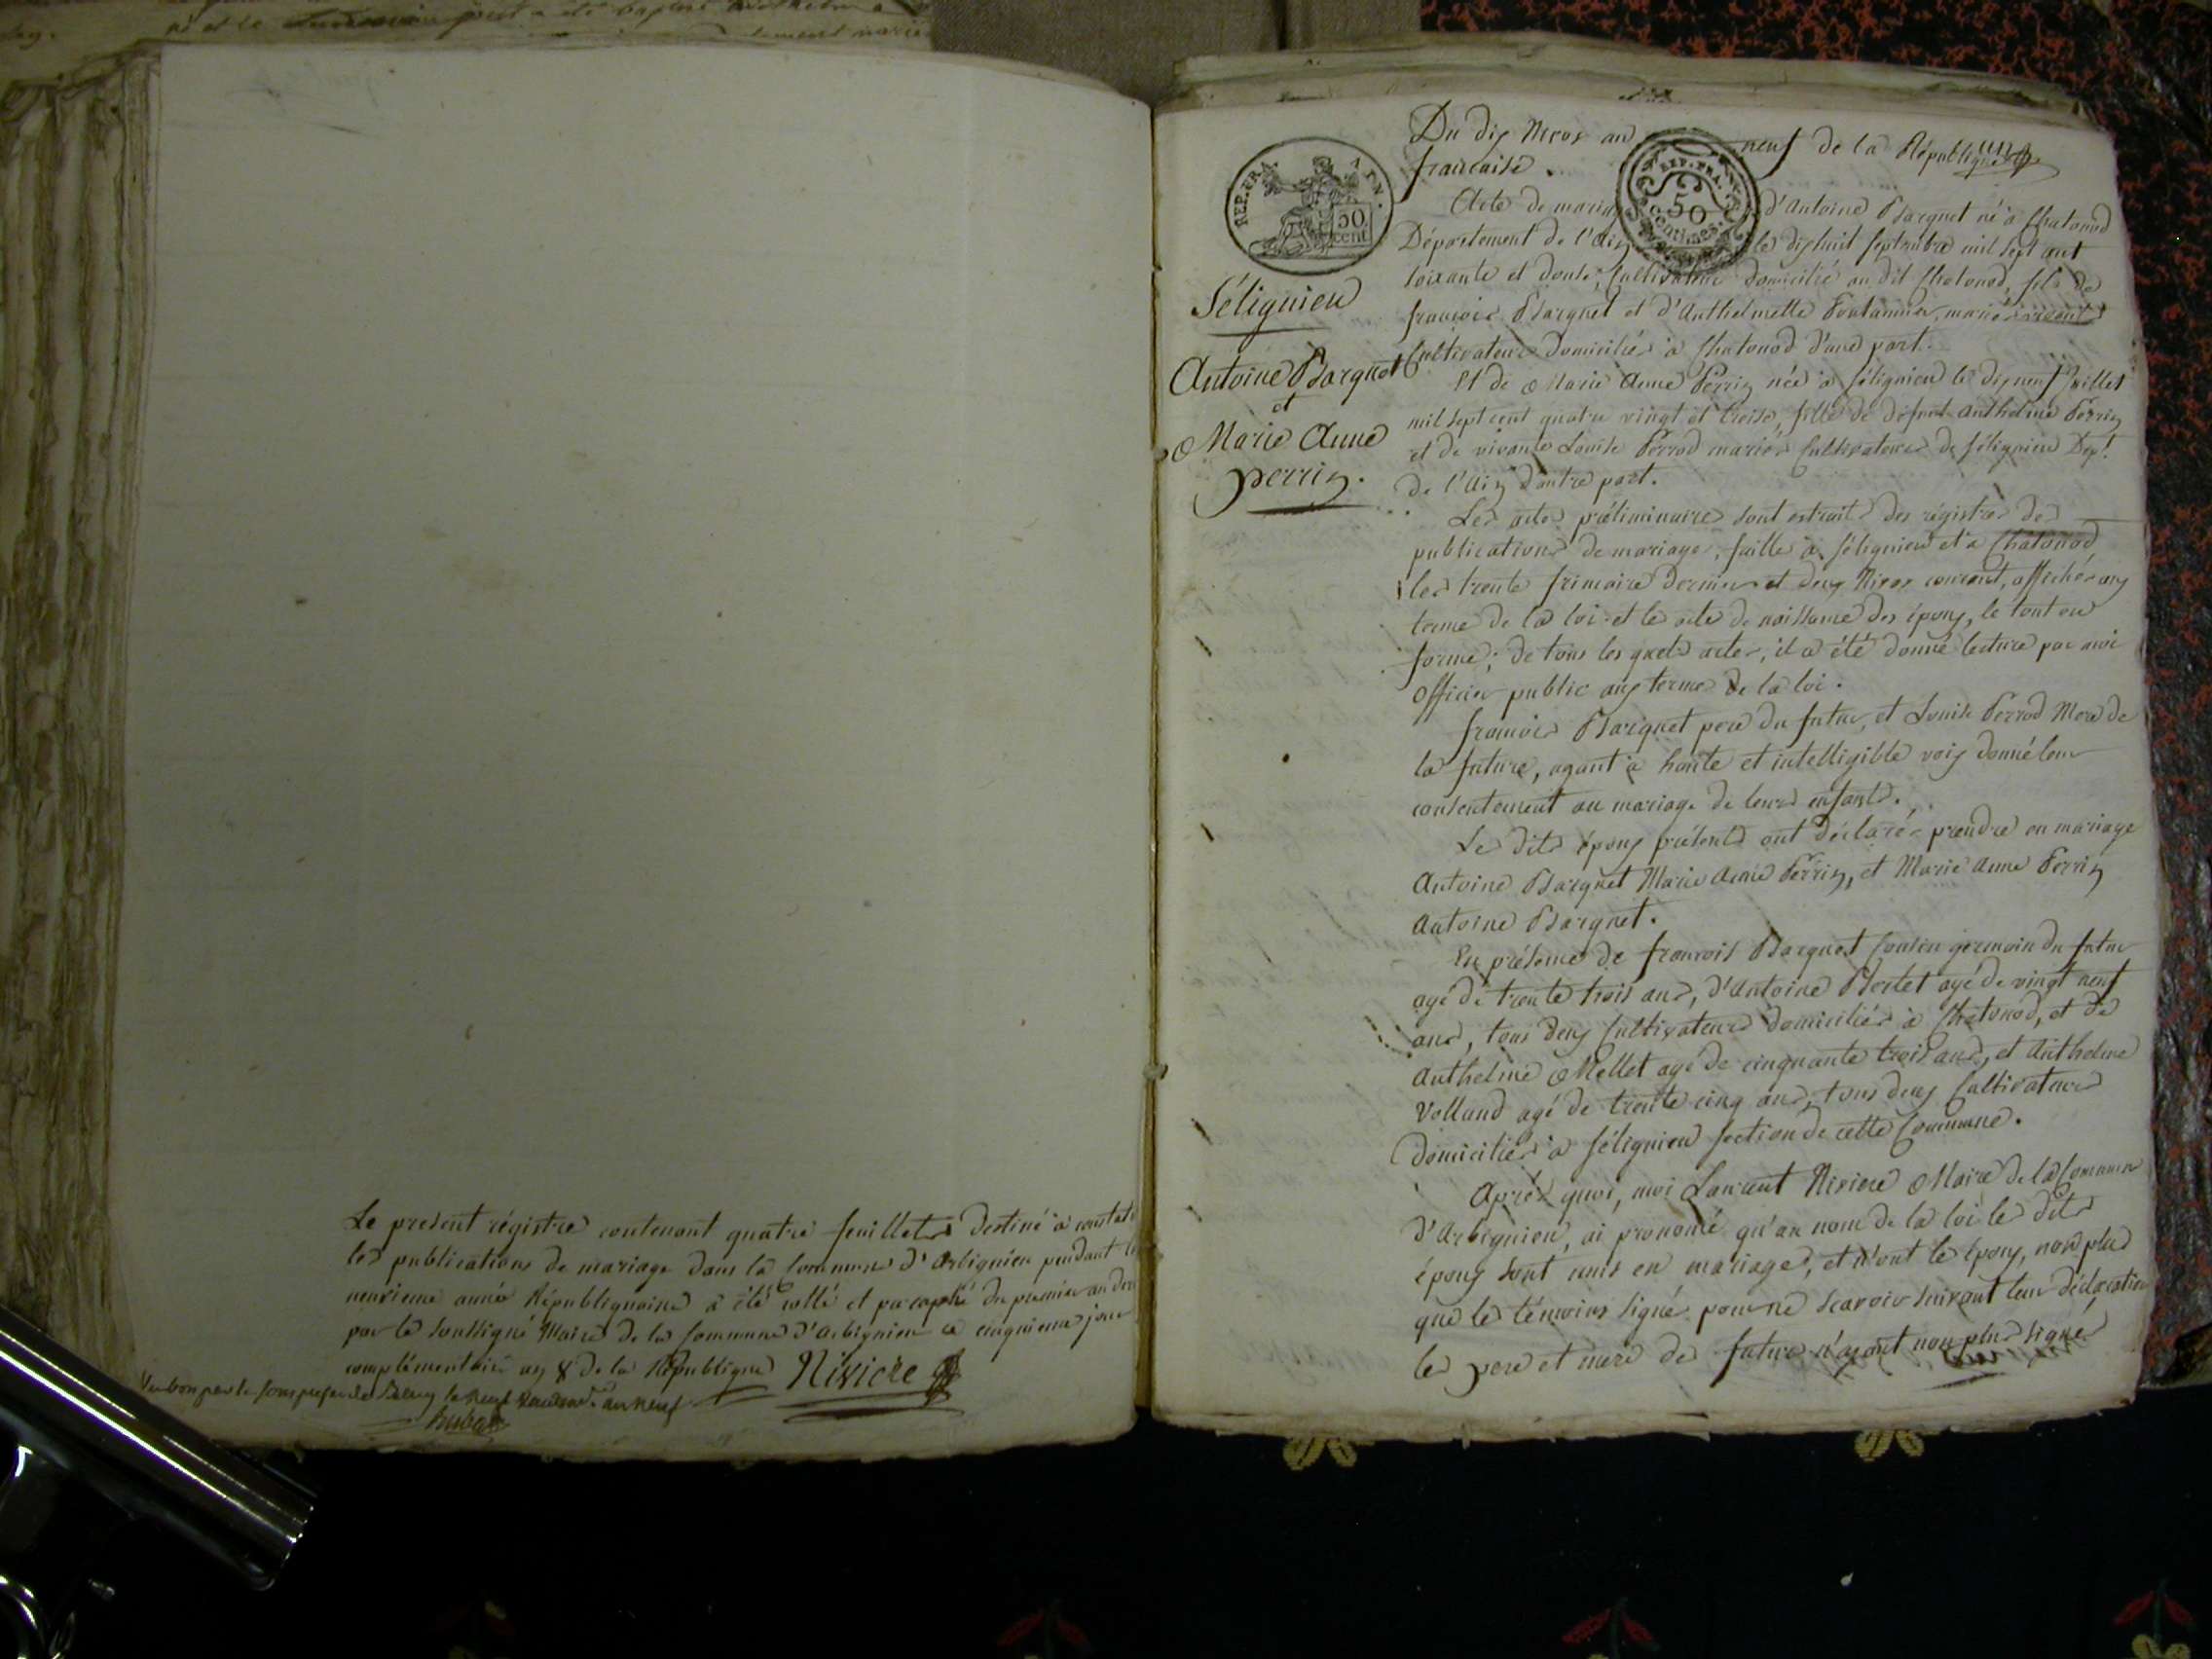 Le present régistre contenant quatre feuillets destiné à constater
les publications de mariage dans la commune d'Arbignieu pendant
neuvieme année Républiquaine a été collé et paraphé du premier au
par le soussigné Maire de la commune d'Arbignieu ce cinquieme jour
complémentaire an 8 de la République Riviere
Vu bon par le sous prefet de Belley le neuf an neuf
REP. FRA.
50
cent
Séliguieu
Antoine Barquet
et
Marie Anne
perrin.
un
Du dix Nivos an neuf de la République
francaise.
REP. FRA.
50
centimes
Acte de mariage d'Antoine Barquet né à Chatonod
Département de l'Ain le dix huit septembre mil sept cent
soixante et douse, Cultivateur domicilié au dit Chatonod, fils de
francois Barquet et d'Anthelmette Fontanier, mariés vivants
Cultivateurs domiciliés à Chatonod d'une part.
Et de Marie Anne Perrin née à Séliguieu le dix neuf Juillet
mil sept cent quatre vingt et treise, fille de défunt Anthelme Perrin
et de vivante Louise Perrod mariés Cultivateurs de Séliguieu Dept.
de l'Ain d'autre part.
Les actes préliminaires sont extraits des régistres de
publications de mariage, faittes à Séliguieu et à Chatonod
les trente frimaire dernier et deux Nivos courant, affichés aux
terme de la loi et les acte de naissance des époux, le tout en
forme; de tous les quels actes, il a été donné lecture par moi
officier public aux termes de la loi.
francois Barquet pere du futur, et Louise Perrod Mere de
la future, ayant à haute et intelligible voix donné leur
consentement au mariage de leurs enfants.
Les dits époux présents ont déclaré prendre en mariage
Antoine Barquet Marie Anne Perrin, et Marie Anne Perrin
Antoine Barquet.
En présence de francois Barquet Cousin germain du futur
agé de trente trois ans, d'Antoine Bertet agé de vingt neuf
ans, tous deux Cultivateurs domiciliés à Chatonod, et de
Anthelme Mellet agé de cinquante trois ans, et Anthelme
Volland agé de trente cinq ans, tous deux Cultivateurs
domiciliés à Séliguieu section de cette Commune.
Après quoi, moi Laurent Riviere Maire de la Commune
d'Arbignieu, ai prononcé qu'au nom de la loi les dits
époux sont unis en mariage, et n'ont les époux, non plus
que les témoins signé pour ne scavoir suivant leur déclaration
les pere et mere des futurs n'ayant non plus signés